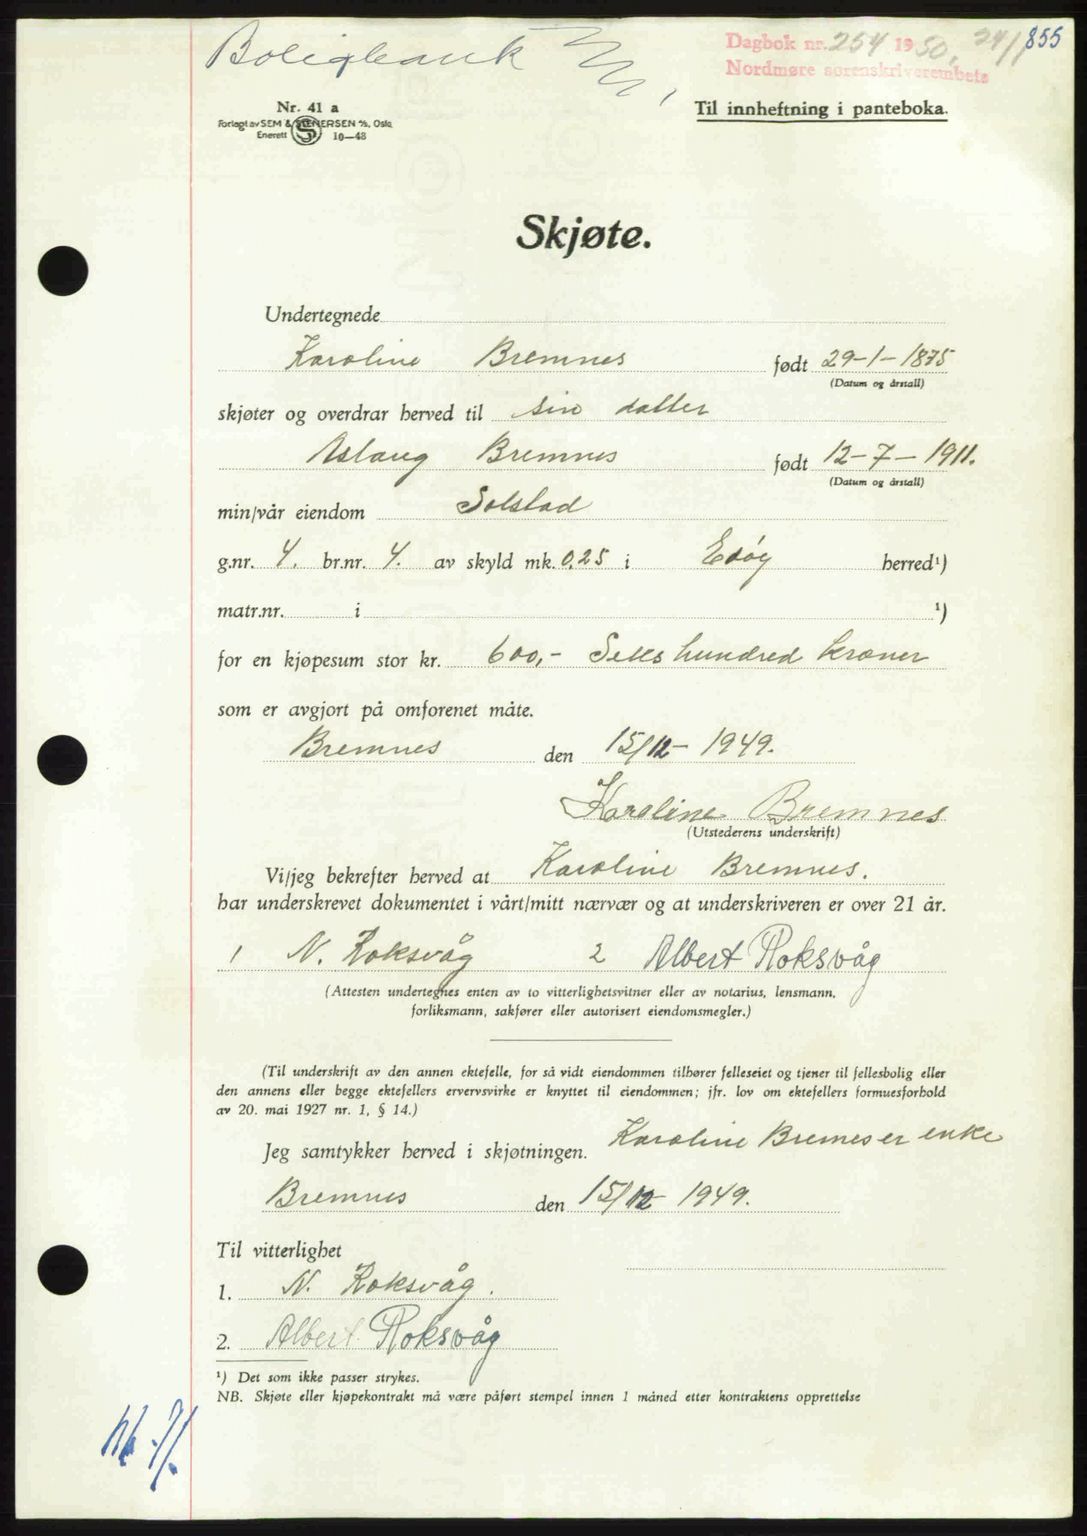 Boligbank
Dagbok nr. 254 1950, 24/1 855
Nordmøre sorenskriverembets
Nr. 41 a
Forlagt av SEM & STENERSEN A/S, Oslo
Enerett S 10—48
Til innheftning i panteboka.
Skjøte.
Undertegnede
Karoline Bremnes født 29-1-1875
(Datum og årstall)
skjøter og overdrar herved til sin datter
Aslaug Bremnes født 12-7-1911.
(Datum og årstall)
min/vår eiendom Solstad
g.nr. 4. br.nr. 4. av skyld mk. 0,25 i Edøy herred¹)
matr.nr. i ¹)
for en kjøpesum stor kr. 600,- Seks hundred kroner
som er avgjort på omforenet måte.
Bremnes den 15/12- 1949.
Karoline Bremnes
(Utstederens underskrift)
Vi/jeg bekrefter herved at Karoline Bremnes.
har underskrevet dokumentet i vårt/mitt nærvær og at underskriveren er over 21 år.
1 N. Roksvåg 2 Albert Roksvåg
(Attesten undertegnes enten av to vitterlighetsvitner eller av notarius, lensmann,
forliksmann, sakfører eller autorisert eiendomsmegler.)
(Til underskrift av den annen ektefelle, for så vidt eiendommen tilhører felleseiet og tjener til fellesbolig eller
den annens eller begge ektefellers ervervsvirke er knyttet til eiendommen; jfr. lov om ektefellers formuesforhold
av 20. mai 1927 nr. 1, § 14.)
Jeg samtykker herved i skjøtningen. Karoline Bremes er enke
Bremnes den 15/12- 1949.
Til vitterlighet
1. N. Roksvåg.
2. Albert Roksvåg
¹) Det som ikke passer strykes.
NB. Skjøte eller kjøpekontrakt må være påført stempel innen 1 måned etter kontraktens opprettelse